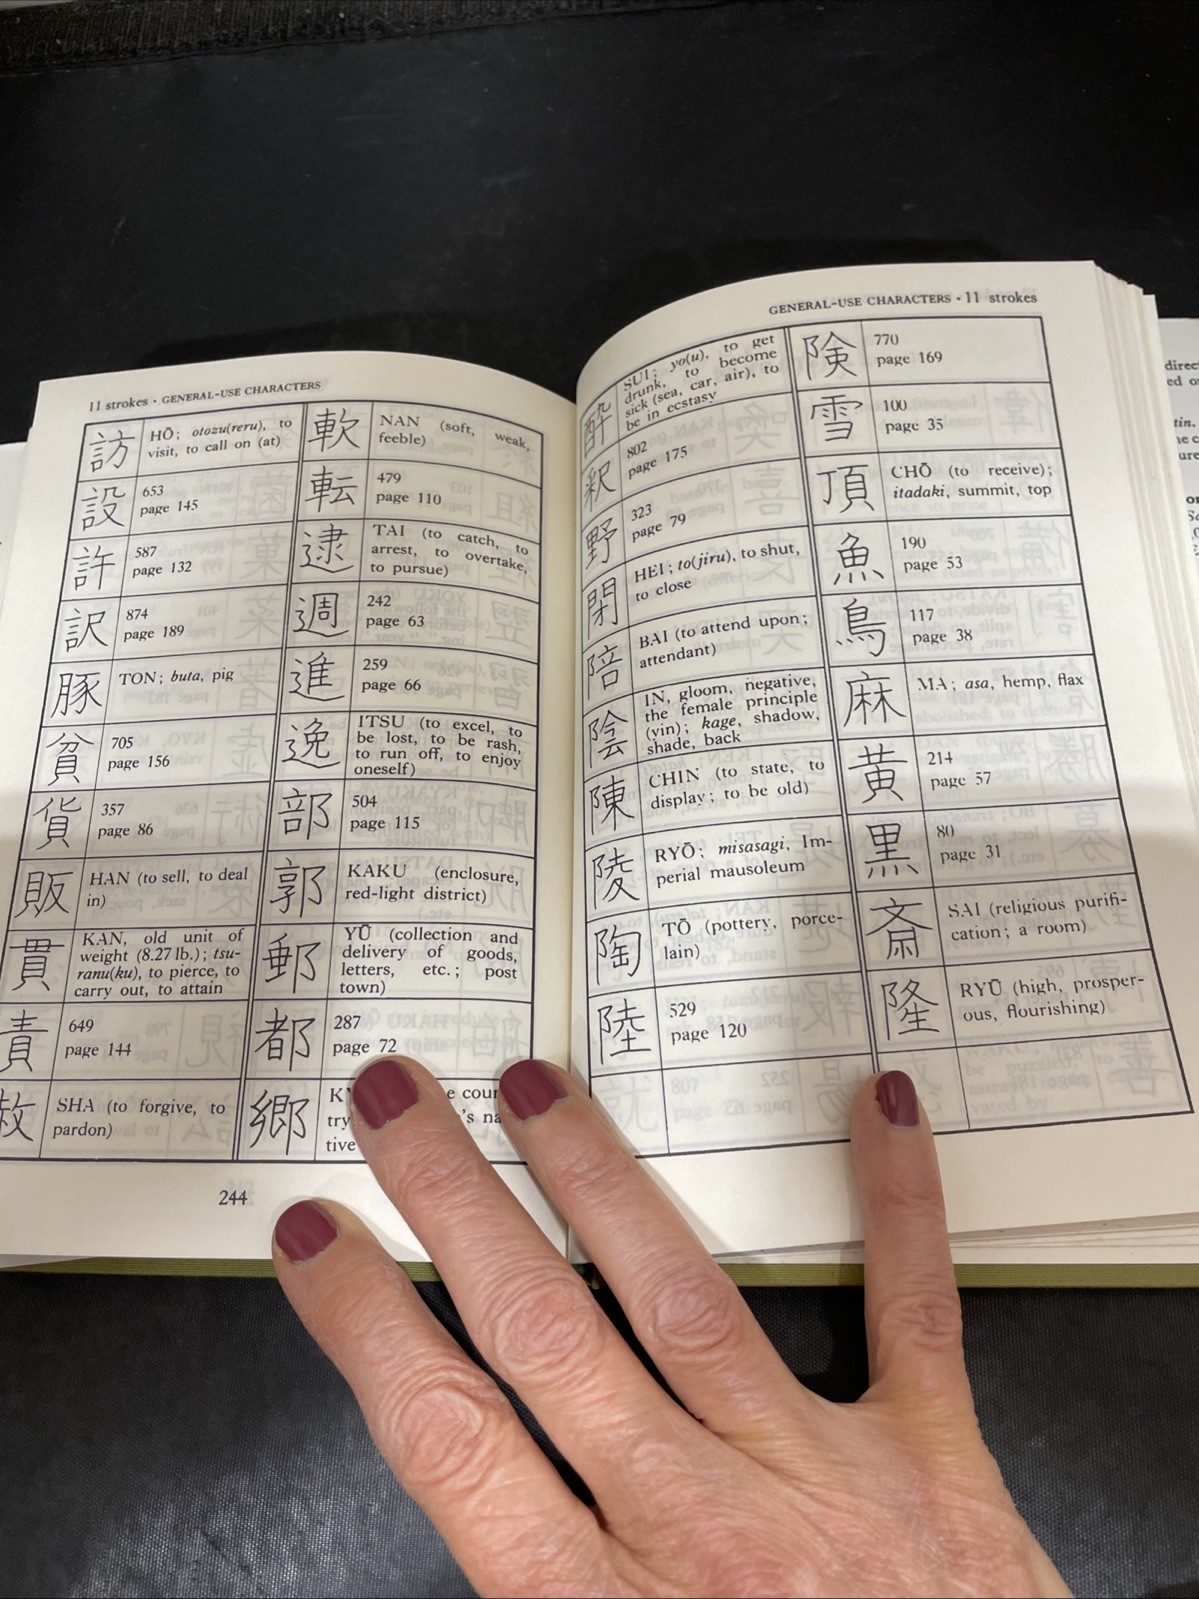 11 strokes · GENERAL-USE CHARACTERS
訪
HŌ; otozu(reru), to
visit, to call on (at)
設
653
page 145
許
587
page 132
訳
874
page 189
豚
TON; buta, pig
貧
705
page 156
貨
357
page 86
販
HAN (to sell, to deal
in)
貫
KAN, old unit of
weight (8.27 lb.); tsu-
ranu(ku), to pierce, to
carry out, to attain
責
649
page 144
赦
SHA (to forgive, to
pardon)
軟
NAN (soft, weak,
feeble)
転
479
page 110
逮
TAI (to catch, to
arrest, to overtake,
to pursue)
週
242
page 63
進
259
page 66
逸
ITSU (to excel, to
be lost, to be rash,
to run off, to enjoy
oneself)
部
504
page 115
郭
KAKU (enclosure,
red-light district)
郵
YŪ (collection and
delivery of goods,
letters, etc.; post
town)
都
287
page 72
郷
tive
244
GENERAL-USE CHARACTERS · 11 strokes
酔
SUI; yo(u), to get
drunk, to become
sick (sea, car, air), to
be in ecstasy
釈
802
page 175
野
323
page 79
閉
HEI; to(jiru), to shut,
to close
陪
BAI (to attend upon;
attendant)
陰
IN, gloom, negative,
the female principle
(yin); kage, shadow,
shade, back
陳
CHIN (to state, to
display; to be old)
陵
RYŌ; misasagi, Im-
perial mausoleum
陶
TŌ (pottery, porce-
lain)
陸
529
page 120
険
770
page 169
雪
100
page 35
頂
CHŌ (to receive);
itadaki, summit, top
魚
190
page 53
鳥
117
page 38
麻
MA; asa, hemp, flax
黄
214
page 57
黒
80
page 31
斎
SAI (religious purifi-
cation; a room)
隆
RYŪ (high, prosper-
ous, flourishing)